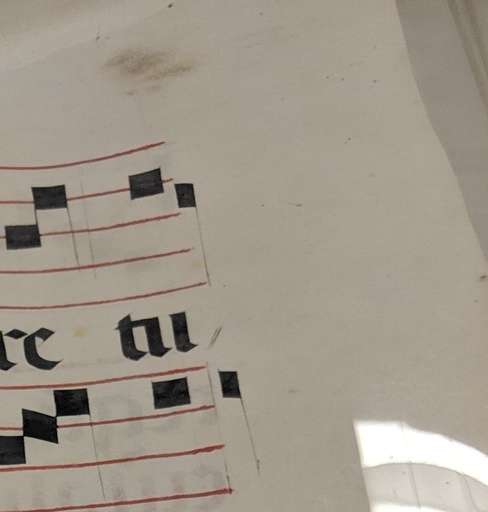 re tu